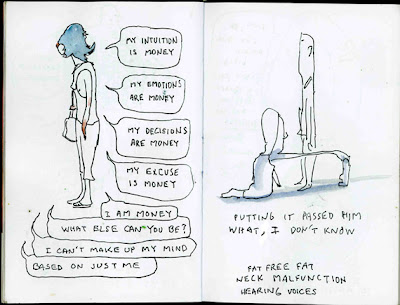 MY INTUITION
IS MONEY
MY EMOTIONS
ARE MONEY
MY DECISIONS
ARE MONEY
MY EXCUSE
IS MONEY
I AM MONEY
WHAT ELSE CAN YOU BE?
I CAN'T MAKE UP MY MIND
BASED ON JUST ME
PUTTING IT PASSED HIM
WHAT, I DON'T KNOW
FAT FREE FAT
NECK MALFUNCTION
HEARING VOICES